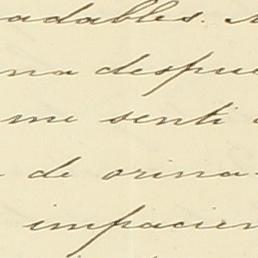 adables.
na despue
me senti
de orina-
impacien